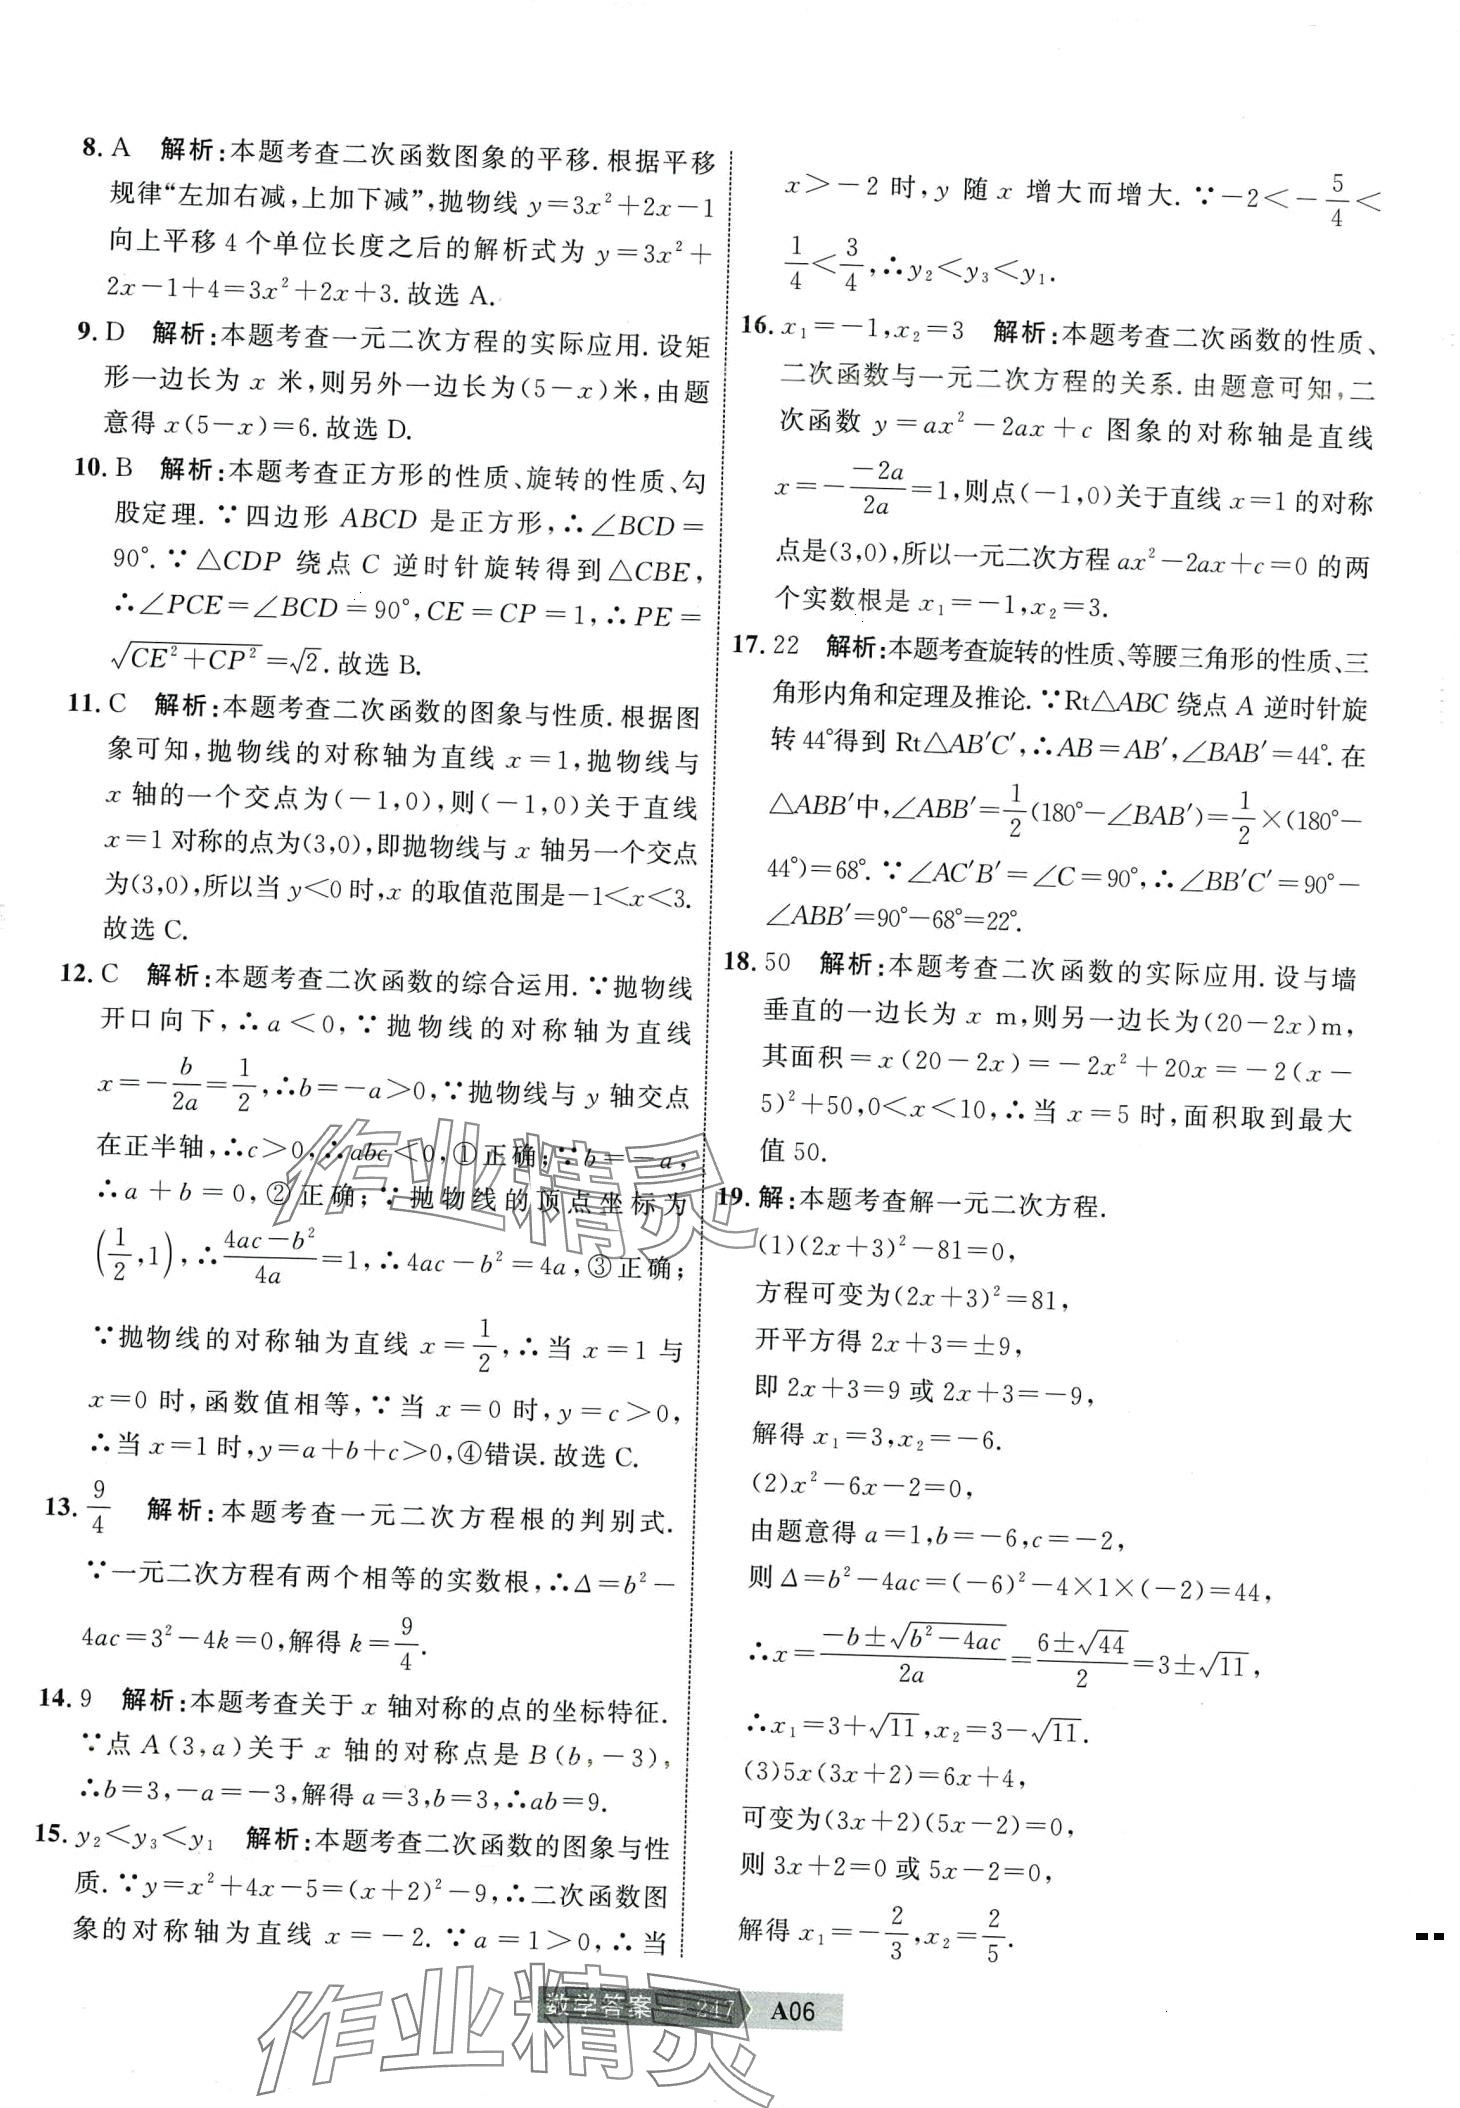 8. A 解析:本题考查二次函数图象的平移.根据平移
规律“左加右减,上加下减”,抛物线 y=3x²+2x-1
向上平移 4 个单位长度之后的解析式为 y=3x²+
2x-1+4=3x²+2x+3.故选 A.
9. D 解析:本题考查一元二次方程的实际应用.设矩
形一边长为 x 米,则另外一边长为(5-x)米,由题
意得 x(5-x)=6.故选 D.
10. B 解析:本题考查正方形的性质、旋转的性质、勾
股定理.∵四边形 ABCD 是正方形,∴∠BCD=
90°.∵△CDP 绕点 C 逆时针旋转得到△CBE,
∴∠PCE=∠BCD=90°,CE=CP=1,∴PE=
√(CE²+CP²)=√2.故选 B.
11. C 解析:本题考查二次函数的图象与性质.根据图
象可知,抛物线的对称轴为直线 x=1,抛物线与
x 轴的一个交点为(-1,0),则(-1,0)关于直线
x=1 对称的点为(3,0),即抛物线与 x 轴另一个交点
为(3,0),所以当 y<0 时,x 的取值范围是-1<x<3.
故选 C.
12. C 解析:本题考查二次函数的综合运用.∵抛物线
开口向下,∴a<0,∵抛物线的对称轴为直线
x=-b/2a=1/2,∴b=-a>0,∵抛物线与 y 轴交点
在正半轴,∴c>0,∴abc<0,①正确;∵b=-a,
∴a+b=0,②正确;∵抛物线的顶点坐标为
(1/2,1),∴(4ac-b²)/4a=1,∴4ac-b²=4a,③正确;
∵抛物线的对称轴为直线 x=1/2,∴当 x=1 与
x=0 时,函数值相等,∵当 x=0 时,y=c>0,
∴当 x=1 时,y=a+b+c>0,④错误.故选 C.
13. 9/4 解析:本题考查一元二次方程根的判别式.
∵一元二次方程有两个相等的实数根,∴Δ=b²-
4ac=3²-4k=0,解得 k=9/4.
14. 9 解析:本题考查关于 x 轴对称的点的坐标特征.
∵点 A(3,a)关于 x 轴的对称点是 B(b,-3),
∴b=3,-a=-3,解得 a=3,b=3,∴ab=9.
15. y₂<y₃<y₁ 解析:本题考查二次函数的图象与性
质.∵y=x²+4x-5=(x+2)²-9,∴二次函数图
象的对称轴为直线 x=-2.∵a=1>0,∴当
x>-2 时,y 随 x 增大而增大.∵-2<-5/4<
1/4<3/4,∴y₂<y₃<y₁.
16. x₁=-1,x₂=3 解析:本题考查二次函数的性质、
二次函数与一元二次方程的关系.由题意可知,二
次函数 y=ax²-2ax+c 图象的对称轴是直线
x=-(-2a)/2a=1,则点(-1,0)关于直线 x=1 的对称
点是(3,0),所以一元二次方程 ax²-2ax+c=0 的两
个实数根是 x₁=-1,x₂=3.
17. 22 解析:本题考查旋转的性质、等腰三角形的性质、三
角形内角和定理及推论.∵Rt△ABC 绕点 A 逆时针旋
转 44°得到 Rt△AB′C′,∴AB=AB′,∠BAB′=44°.在
△ABB′中,∠ABB′=1/2(180°-∠BAB′)=1/2×(180°-
44°)=68°.∵∠AC′B′=∠C=90°,∴∠BB′C′=90°-
∠ABB′=90°-68°=22°.
18. 50 解析:本题考查二次函数的实际应用.设与墙
垂直的一边长为 x m,则另一边长为(20-2x)m,
其面积=x(20-2x)=-2x²+20x=-2(x-
5)²+50,0<x<10,∴当 x=5 时,面积取到最大
值 50.
19. 解:本题考查解一元二次方程.
(1)(2x+3)²-81=0,
方程可变为(2x+3)²=81,
开平方得 2x+3=±9,
即 2x+3=9 或 2x+3=-9,
解得 x₁=3,x₂=-6.
(2)x²-6x-2=0,
由题意得 a=1,b=-6,c=-2,
则 Δ=b²-4ac=(-6)²-4×1×(-2)=44,
∴x=(-b±√(b²-4ac))/2a=(6±√44)/2=3±√11,
∴x₁=3+√11,x₂=3-√11.
(3)5x(3x+2)=6x+4,
可变为(3x+2)(5x-2)=0,
则 3x+2=0 或 5x-2=0,
解得 x₁=-2/3,x₂=2/5.
数学答案—217 A06
作业精灵
作业精灵